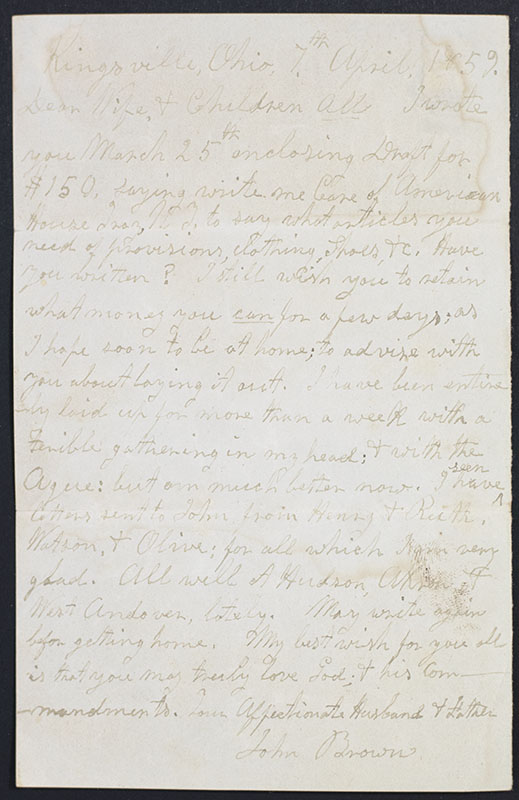 Kingsville, Ohio, 7th April, 1859.
Dear Wife, & Children All. I wrote
you March 25th enclosing Draft for
$150, saying write me Care of American
House Troy, N.Y. to say what articles you
need of provisions, clothing, Shoes, &c. Have
you written? I still wish you to retain
what money you can for a few days; as
I hope soon to be at home; to advize with
you about laying it out. I have been entire
ly laid up for more than a week with a
terible gathering in my head; & with the
Ague: but am much better now. I have seen
letters sent to John, from Henry & Ruth,
Watson, & Olive; for all which I am very
glad. All well at Hudson, Akron, &
West Andover, lately. May write again
before getting home. My best wish for you all
is that you may truly love God; & his Com–
–mandments. Your Affectionate Husband & Father
John Brown